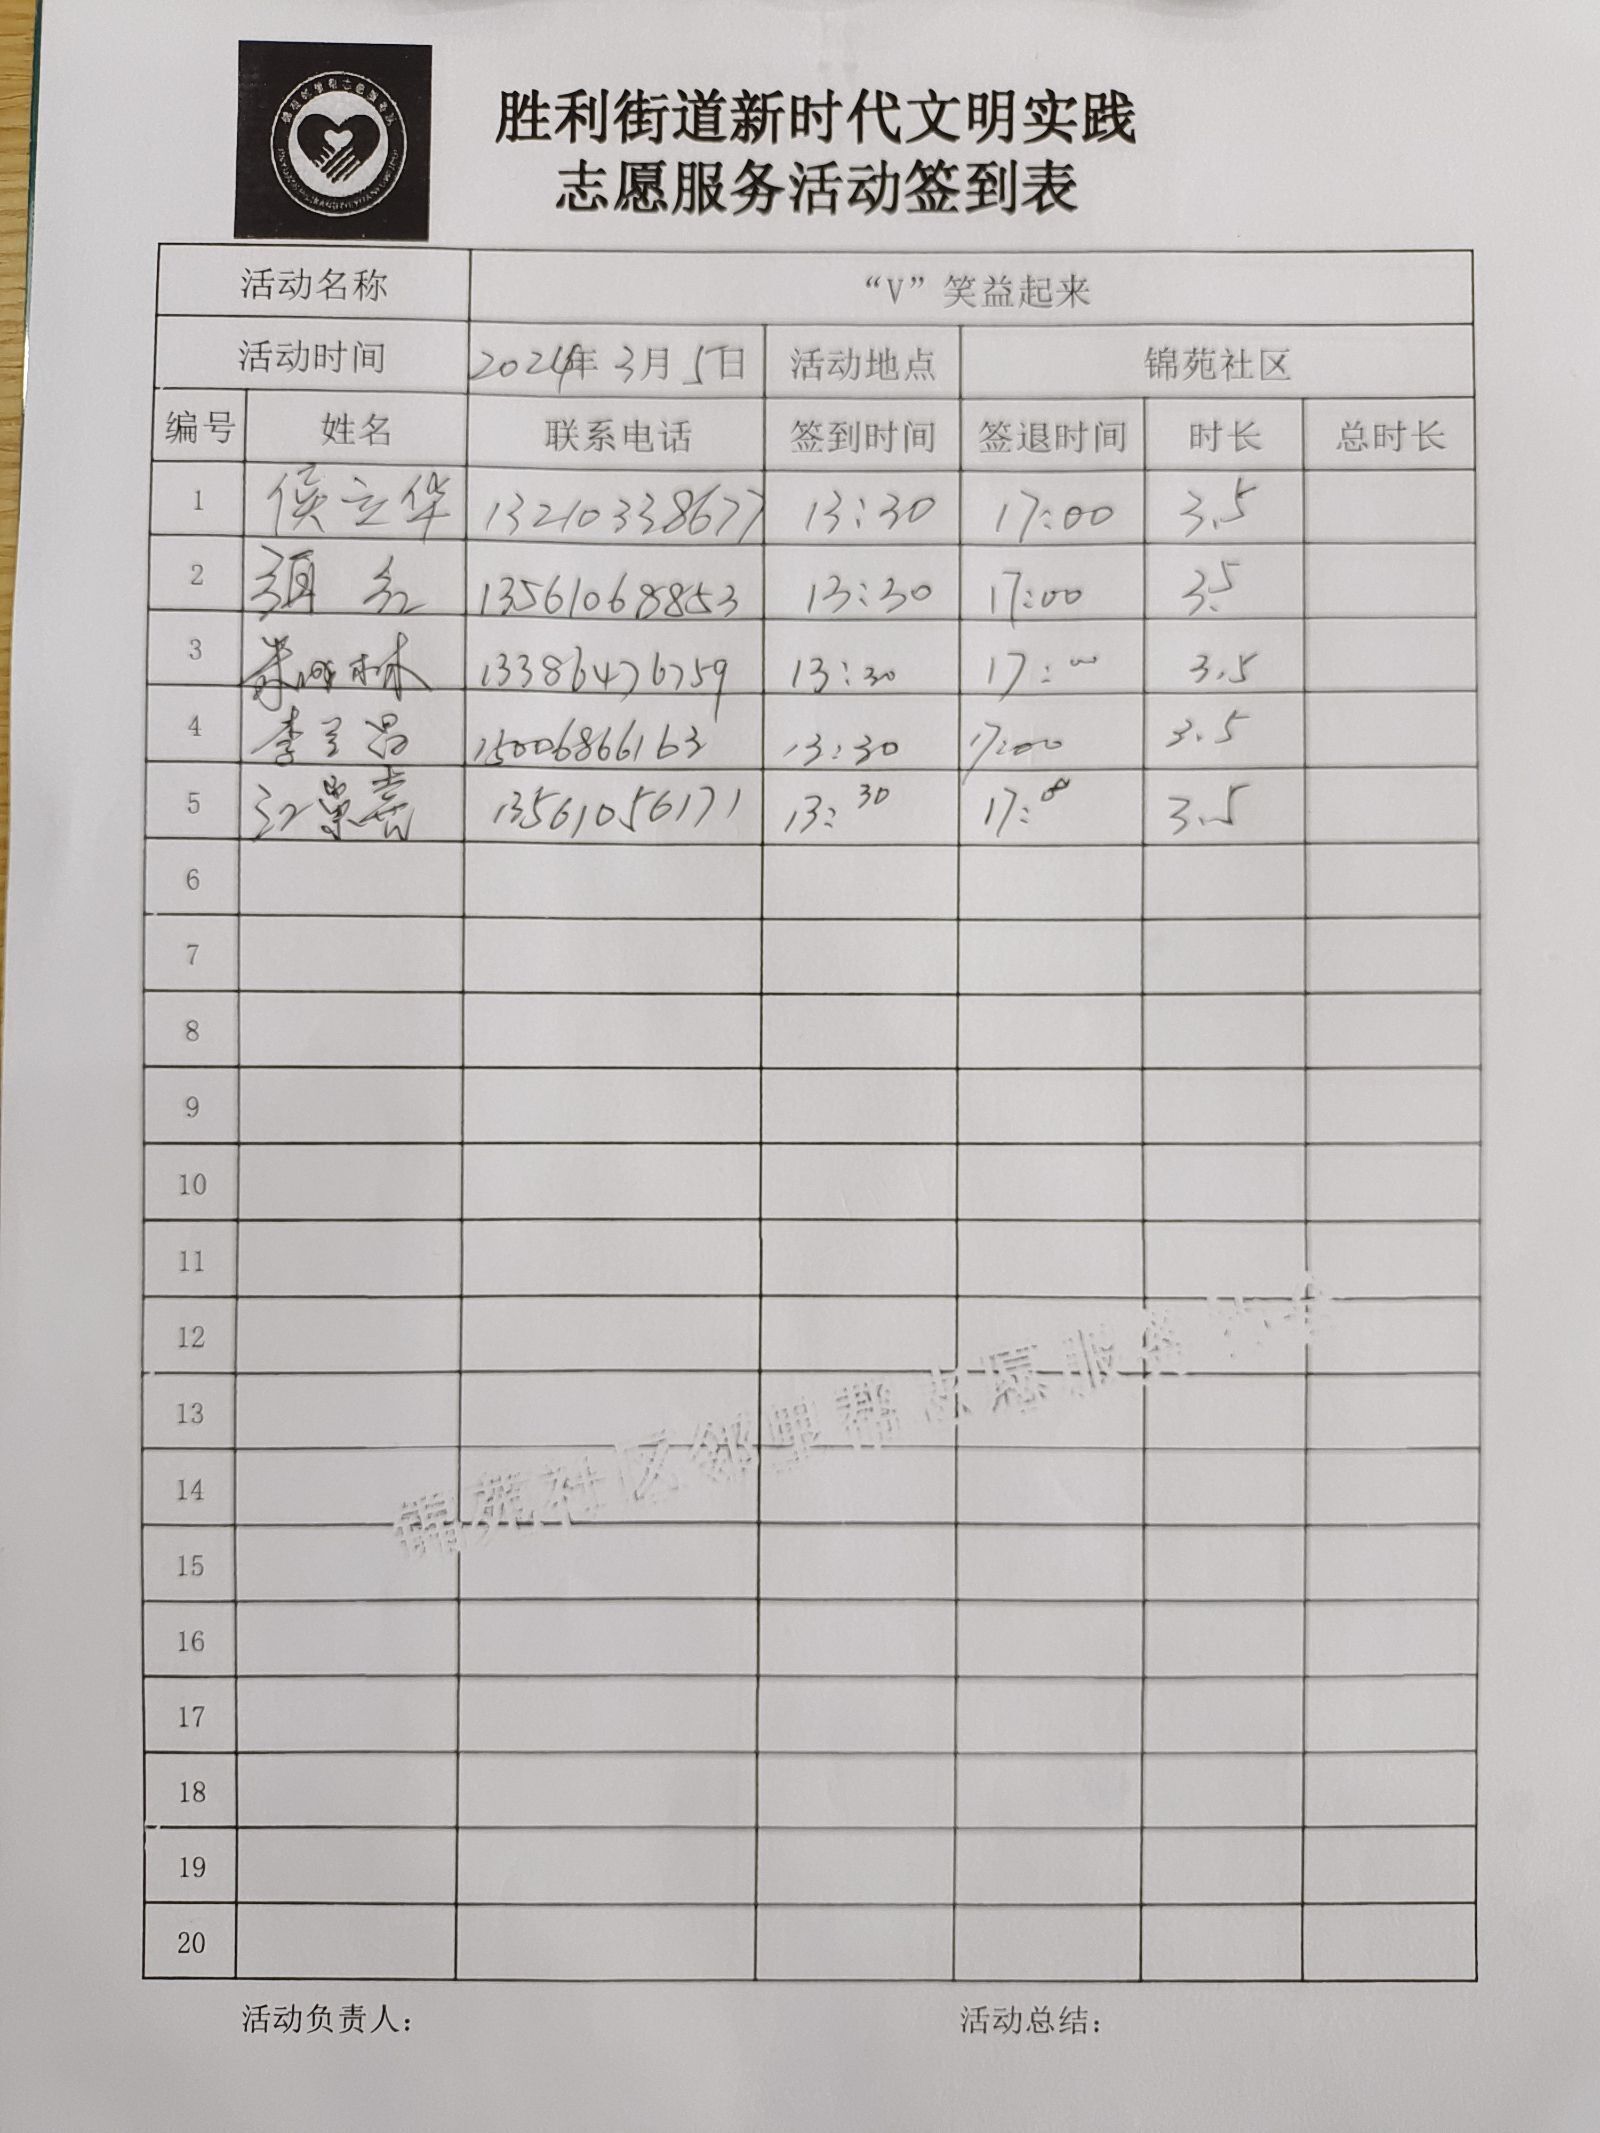 胜利街道新时代文明实践
志愿服务活动签到表
活动名称 “V”笑益起来
活动时间 2024年 3月 5日 活动地点 锦苑社区
编号 姓名 联系电话 签到时间 签退时间 时长 总时长
1 侯立华 13210338677 13:30 17:00 3.5
2 13561068853 13:30 17:00 3.5
3 林 13386476759 13:30 17:00 3.5
4 李兰昌 15006866163 13:30 17:00 3.5
5 13561056171 13:30 17:00 3.5
6
7
8
9
10
11
12
13
14
15
16
17
18
19
20
锦苑社区邻里帮志愿服务
活动负责人： 活动总结：